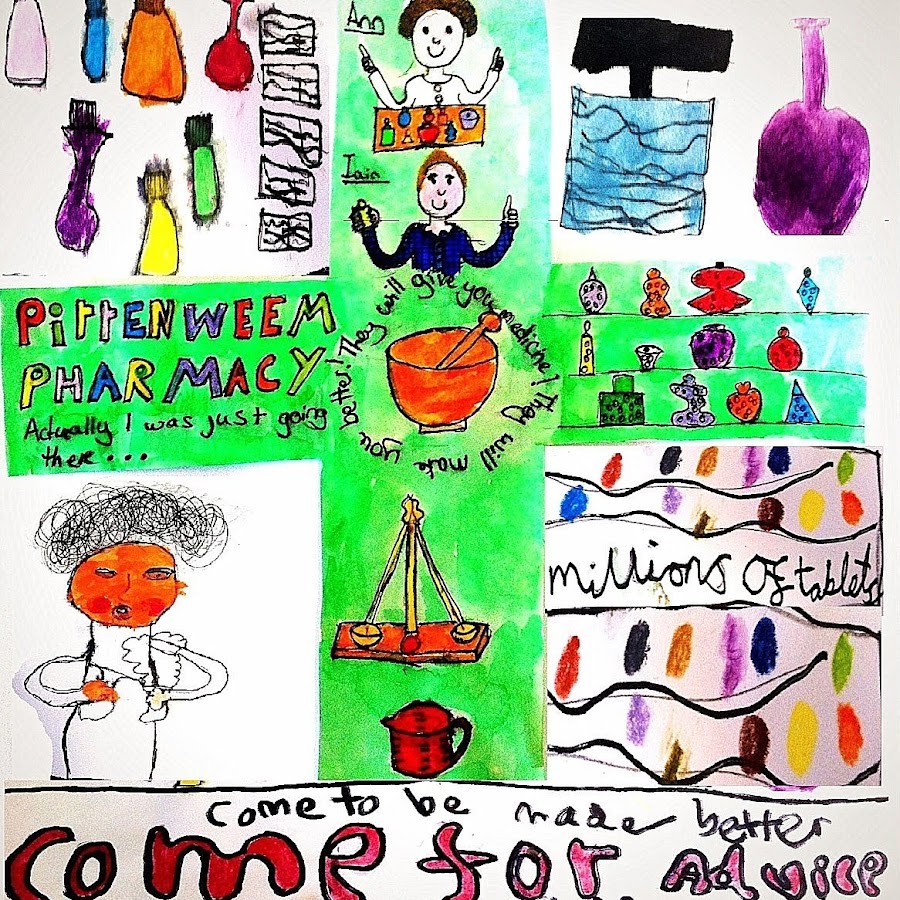 Ann
Iain
They will give you medicine! They will make you better!
PITTENWEEM
PHARMACY
Actually I was just going
there...
millions of tablets
come to be made better
come for Advice